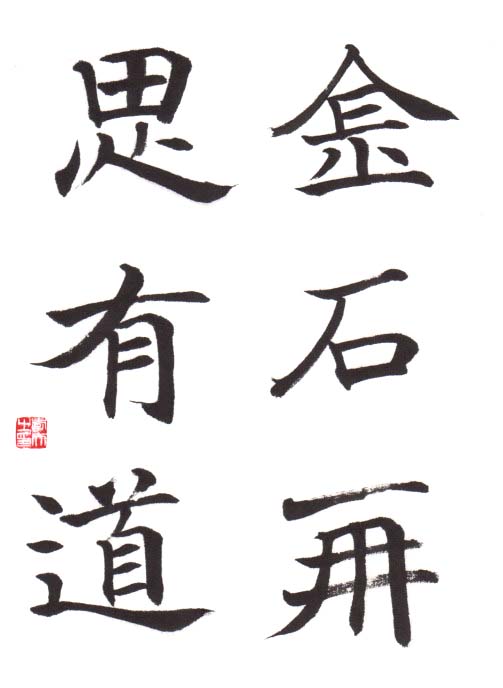 金石再
思有道